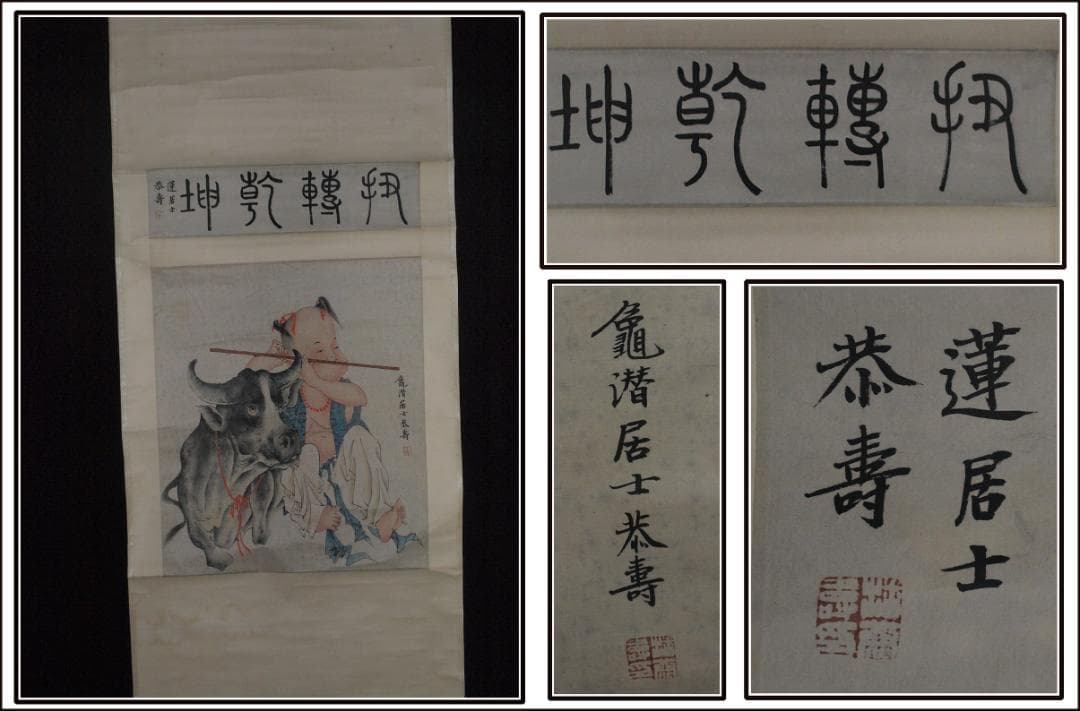 扭轉乾坤
蓮居士
恭壽
龜潜居士恭壽
扭轉乾坤
龜潜居士恭壽
蓮居士
恭壽